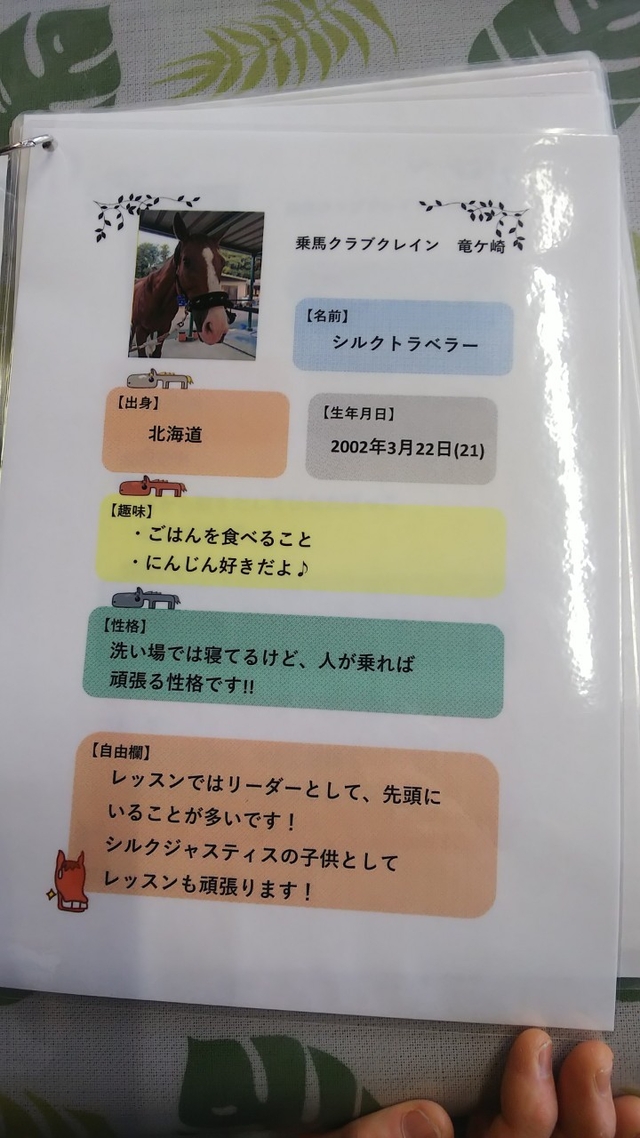 乗馬クラブクレイン　竜ケ崎
【名前】
シルクトラベラー
【出身】
北海道
【生年月日】
2002年3月22日(21)
【趣味】
・ごはんを食べること
・にんじん好きだよ♪
【性格】
洗い場では寝てるけど、人が乗れば
頑張る性格です!!
【自由欄】
レッスンではリーダーとして、先頭に
いることが多いです！
シルクジャスティスの子供として
レッスンも頑張ります！